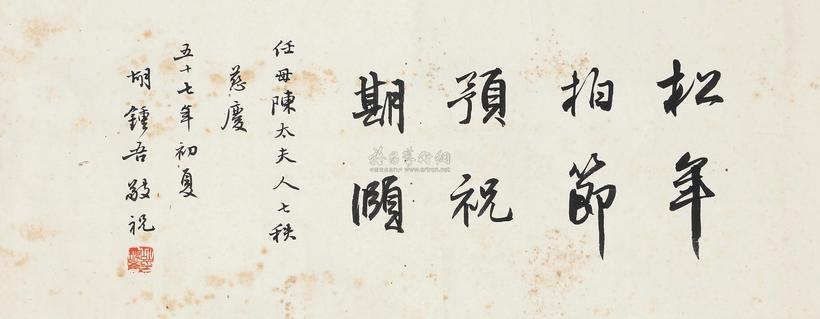 松年
柏節
預祝
期頤
任母陳太夫人七秩
慈慶
五十七年初夏
胡鍾吾敬祝
www.artron.net